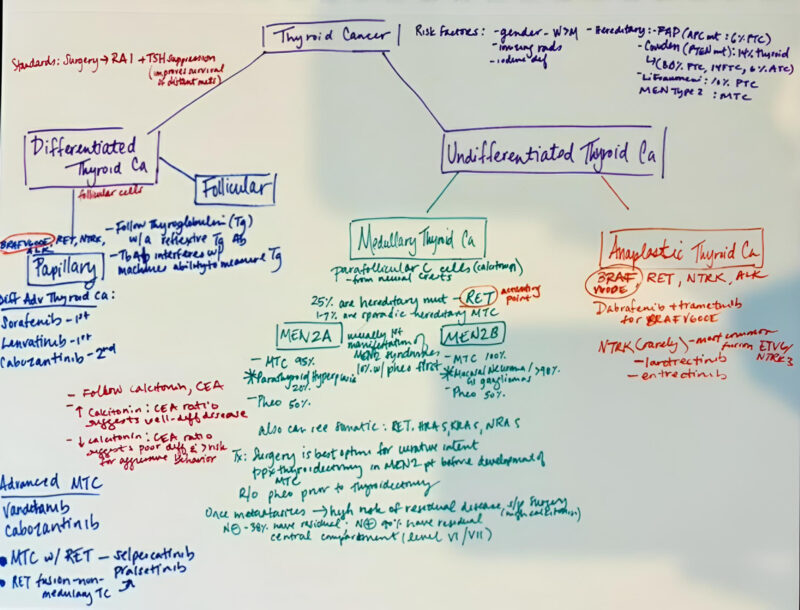 Thyroid Cancer
Standards: Surgery → RAI + TSH suppression
(improves survival
of distant mets)
Risk Factors: - gender - W>M
- iodine def
- Hereditary: - FAP (APC mt: 6% PTC)
- Cowden (PTEN mt): 14% thyroid
- Li Fraumeni: 10% PTC
MEN Type 2 : MTC
Differentiated
Thyroid Ca
follicular cells
Follicular
Undifferentiated Thyroid Ca
BRAFV600E, RET, NTRK,
ALK
Papillary
- Follow Thyroglobulin (Tg)
w/ a reflexive Tg Ab
- Tg Ab interferes w/
machines ability to measure Tg
Diff Adv Thyroid Ca:
Sorafenib - 1st
Lenvatinib - 1st
Cabozantinib - 2nd
- Follow calcitonin, CEA
- ↑ Calcitonin: CEA ratio
suggests well-diff disease
- ↓ calcitonin: CEA ratio
suggests poor diff & > risk
for aggressive behavior
Advanced MTC
Vandetanib
Cabozantinib
• MTC w/ RET - selpercatinib
pralsetinib
• RET fusion-non-
medulary TC
Medullary Thyroid Ca
parafollicular C cells
- from neural crests
25% are hereditary mut - RET
1-7% are sporadic hereditary MTC
MEN2A
usually 1st
manifestation of
MEN2 syndromes
10% w/ pheo first
MEN2B
- MTC 95%
* Parathyroid Hyperplasia
20%
- Pheo 50%
- MTC 100%
* Mucosal Neuroma / >90%
GI gangliomas
- Pheo 50%
also can see somatic: RET, HRAS, KRAS, NRAS
Tx: Surgery is best option for curative intent
ppx thyroidectomy in MEN2 pt before development of
MTC
R/o pheo prior to thyroidectomy
Once metastasizes → high risk of residual disease, s/p surgery
(high calcitonin)
N⊖ - 38% have residual: N⊕ 90% have residual
central compartment (level VI/VII)
Anaplastic Thyroid Ca
BRAF
V600E, RET, NTRK, ALK
Dabrafenib + trametinib
for BRAFV600E
NTRK (rarely) - most common
fusion ETV6/
NTRK3
- larotrectinib
- entrectinib